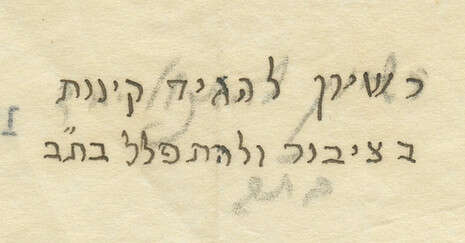 רשיון להגיד קינות
בציבור ולהתפלל בת"ב